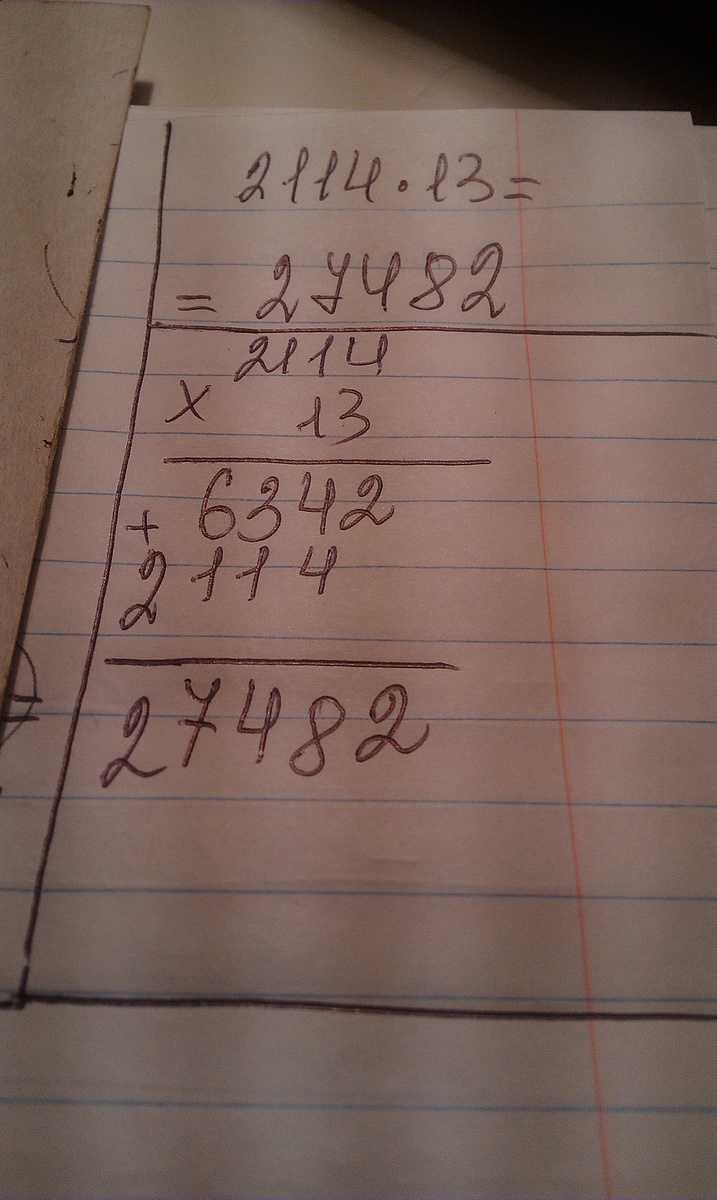 2114·13=
= 27482
2114
× 13
+ 6342
2114
27482